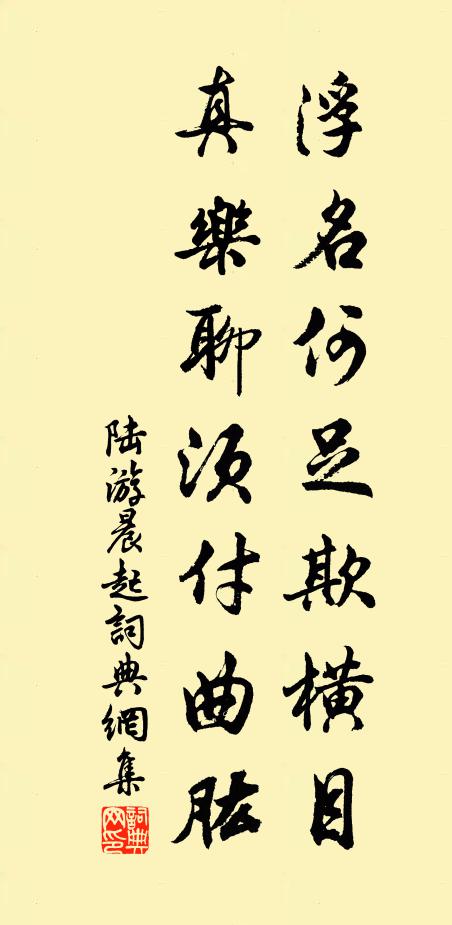 浮名何足欺横目
真樂聊須付曲肱
陆游晨起詞典網集
詞典網印